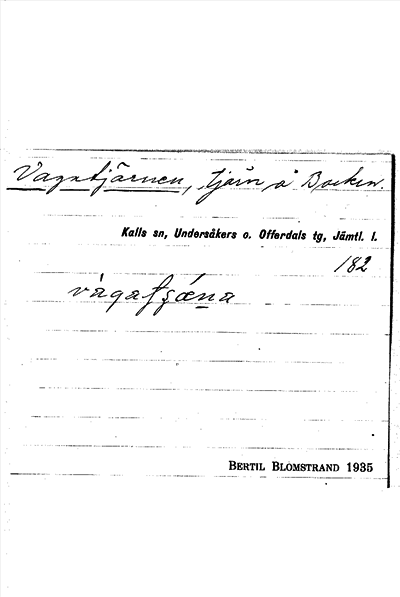 Vagntjärnen, tjärn å Bocken.
Kalls sn, Undersåkers o. Offerdals tg, Jämtl. l.
182
BERTIL BLOMSTRAND 1935